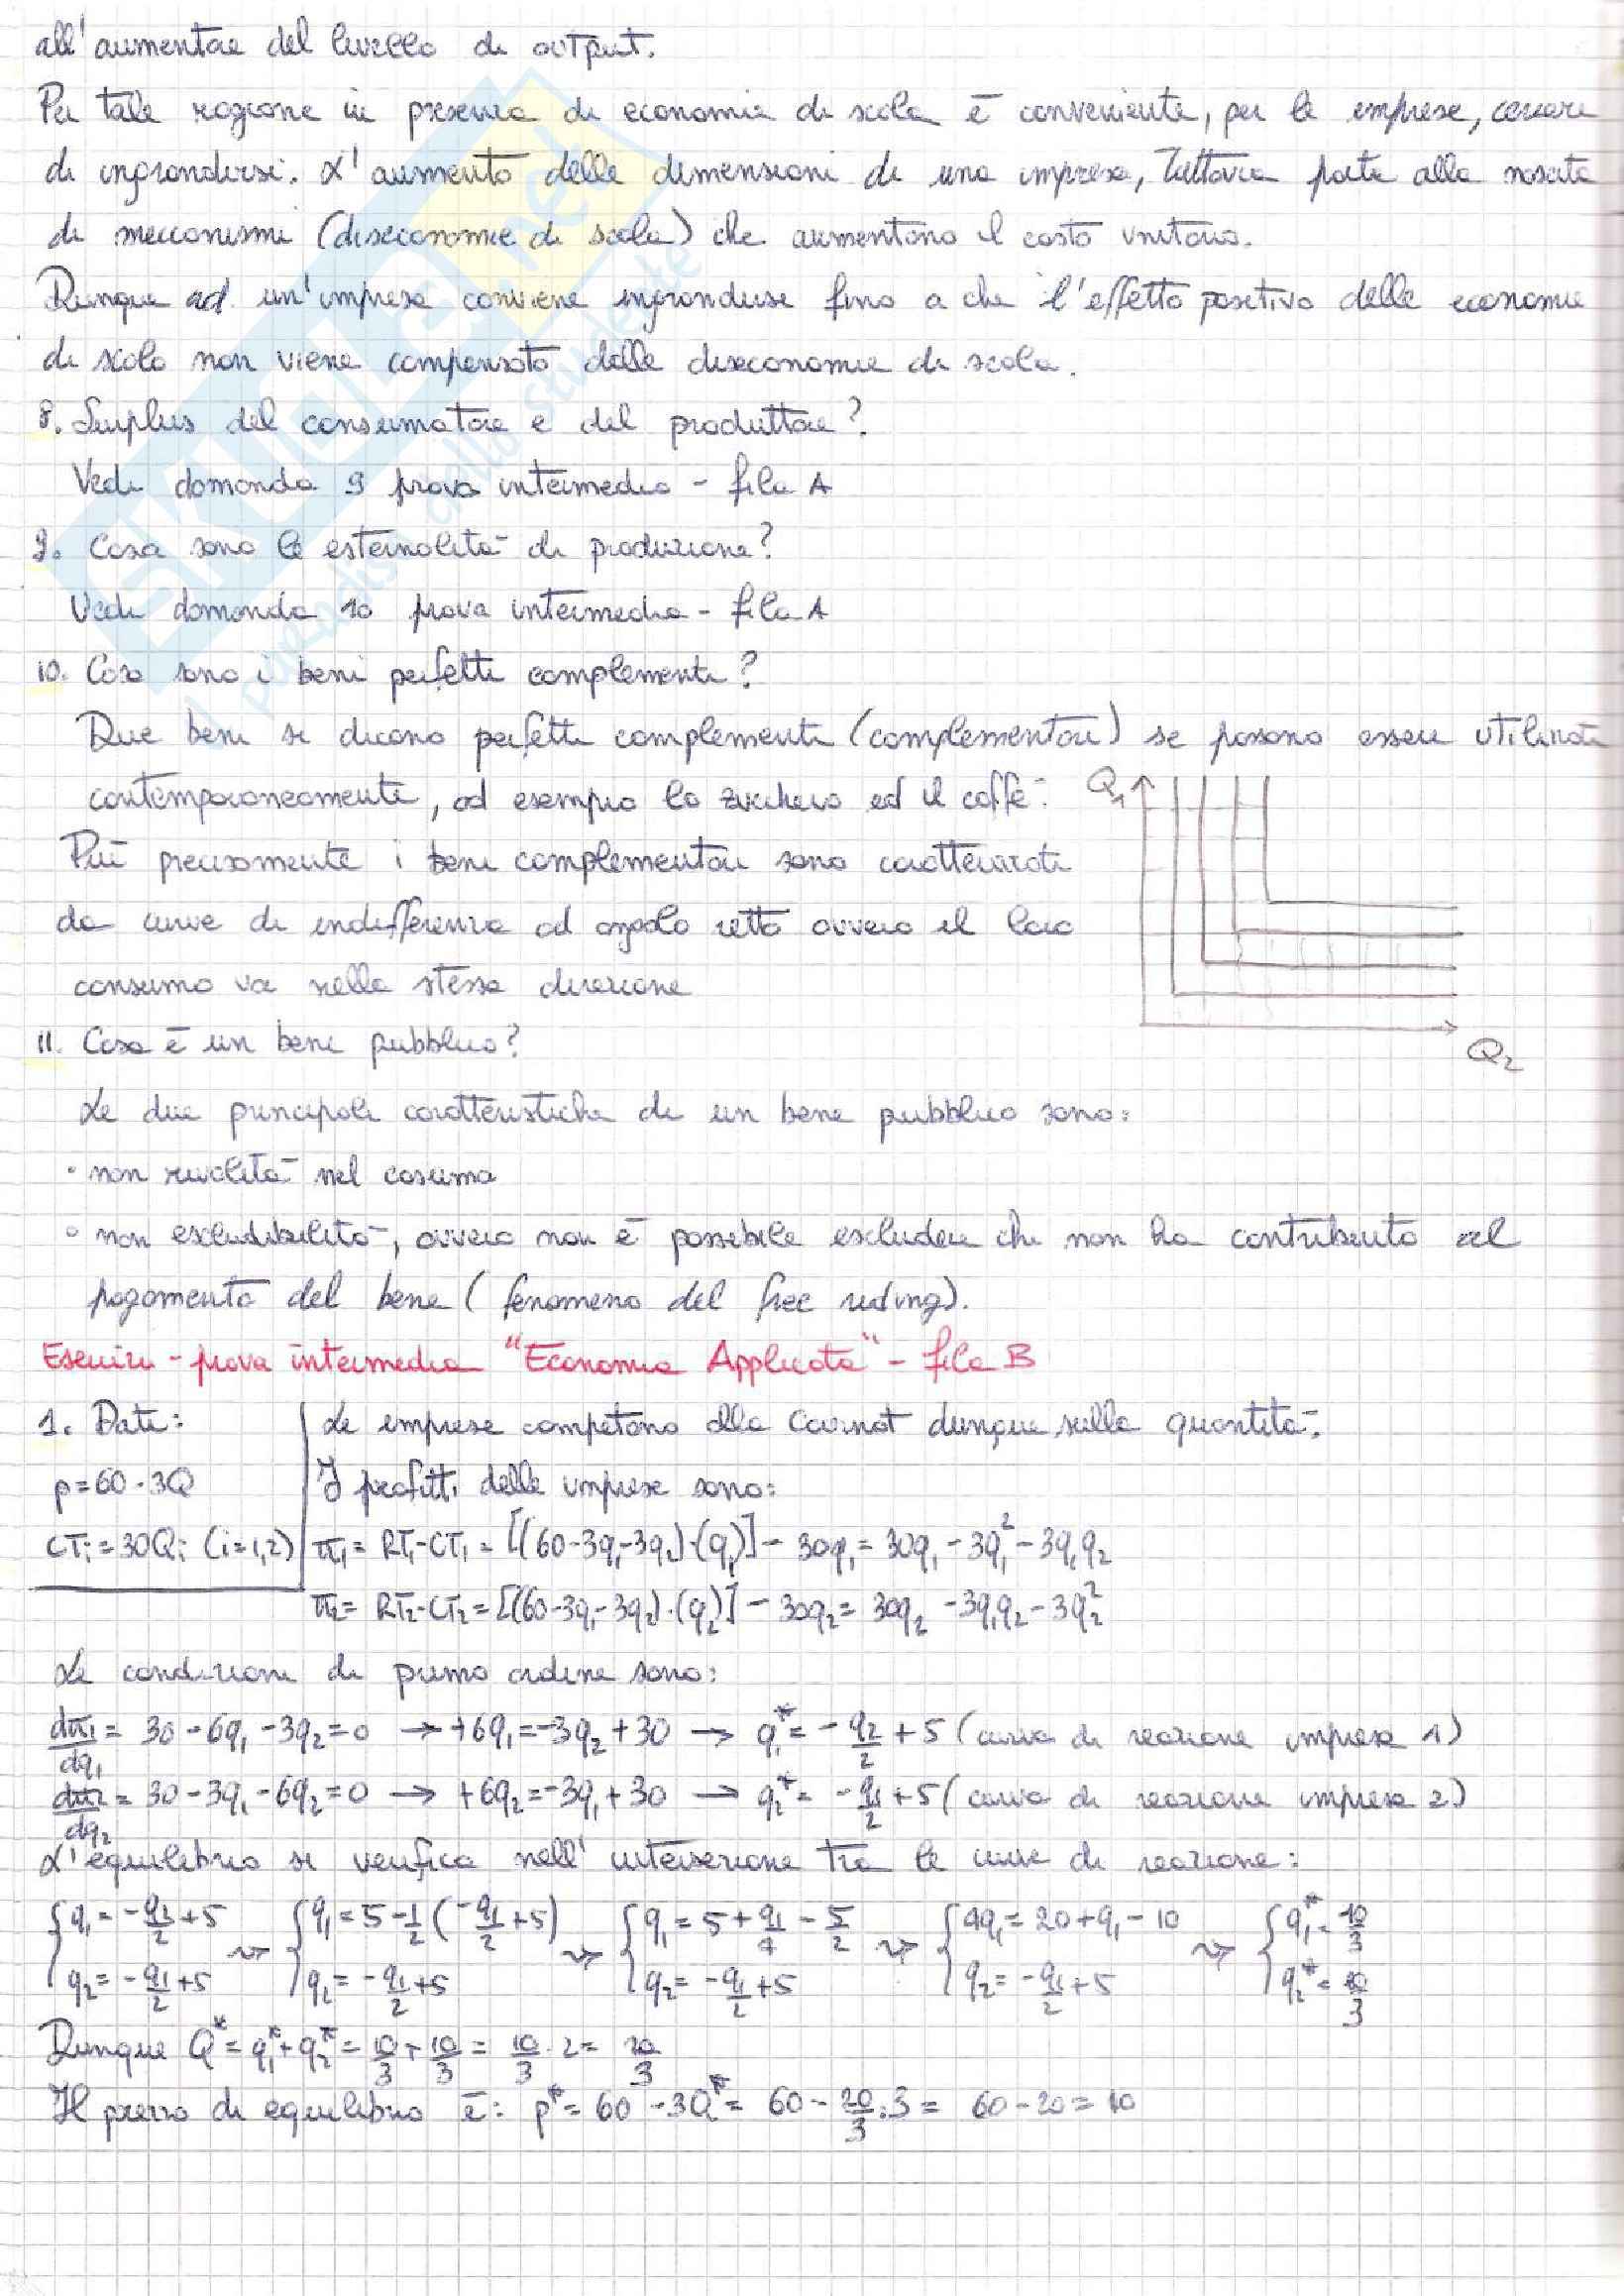 all'aumentare del livello di output.
Per tale ragione in presenza di economie di scala è conveniente, per le imprese, cercare
di ingrandirsi. L'aumento delle dimensioni di una impresa, tuttavia porta alla nascita
di meccanismi (diseconomie di scala) che aumentano il costo unitario.
Dunque ad un'impresa conviene ingrandirsi fino a che l'effetto positivo delle economie
di scala non viene compensato dalle diseconomie di scala.
8. Surplus del consumatore e del produttore?
Vedi domanda 9 prova intermedia - fila A
9. Cosa sono le esternalità di produzione?
Vedi domanda 10 prova intermedia - fila A
10. Cosa sono i beni perfetti complementi?
Due beni si dicono perfetti complementi (complementari) se possono essere utilizzati
contemporaneamente, ad esempio lo zucchero ed il caffè.
Q₁
Più precisamente i beni complementari sono caratterizzati
da curve di indifferenza ad angolo retto ovvero il loro
consumo va nella stessa direzione
Q₂
11. Cosa è un bene pubblico?
Le due principali caratteristiche di un bene pubblico sono:
• non rivalità nel cosumo
• non escludibilità, ovvero non è possibile escludere chi non ha contribuito al
pagamento del bene (fenomeno del free riding).
Esercizi - prova intermedia "Economia Applicata" - fila B
1. Dati:
Le imprese competono alla Cournot dunque sulla quantità.
p=60-3Q
I profitti delle imprese sono:
CTᵢ=30Qᵢ (i=1,2)
π₁= RT₁-CT₁= [(60-3q₁-3q₂)·(q₁)] - 30q₁= 30q₁-3q₁²-3q₁q₂
π₂= RT₂-CT₂= [(60-3q₁-3q₂)·(q₂)] - 30q₂= 30q₂-3q₁q₂-3q₂²
Le condizioni di primo ordine sono:
dπ₁/dq₁= 30-6q₁-3q₂=0 → +6q₁=-3q₂+30 → q₁*= -q₂/2 +5 (curva di reazione impresa 1)
dπ₂/dq₂= 30-3q₁-6q₂=0 → +6q₂=-3q₁+30 → q₂*= -q₁/2 +5 (curva di reazione impresa 2)
L'equilibrio si verifica nell'intersezione tra le curve di reazione:
{q₁= -q₂/2 +5 ⇝ {q₁=5-1/2(-q₁/2 +5) ⇝ {q₁=5+q₁/4 - 5/2 ⇝ {4q₁=20+q₁-10 ⇝ {q₁*=10/3
q₂= -q₁/2 +5 q₂= -q₁/2 +5 q₂= -q₁/2 +5 q₂= -q₁/2 +5 q₂*=10/3
Dunque Q*= q₁*+q₂*= 10/3 + 10/3 = 10/3 · 2= 20/3
Il prezzo di equilibrio è: p*= 60 -3Q*= 60 - 20/3 · 3= 60-20= 40